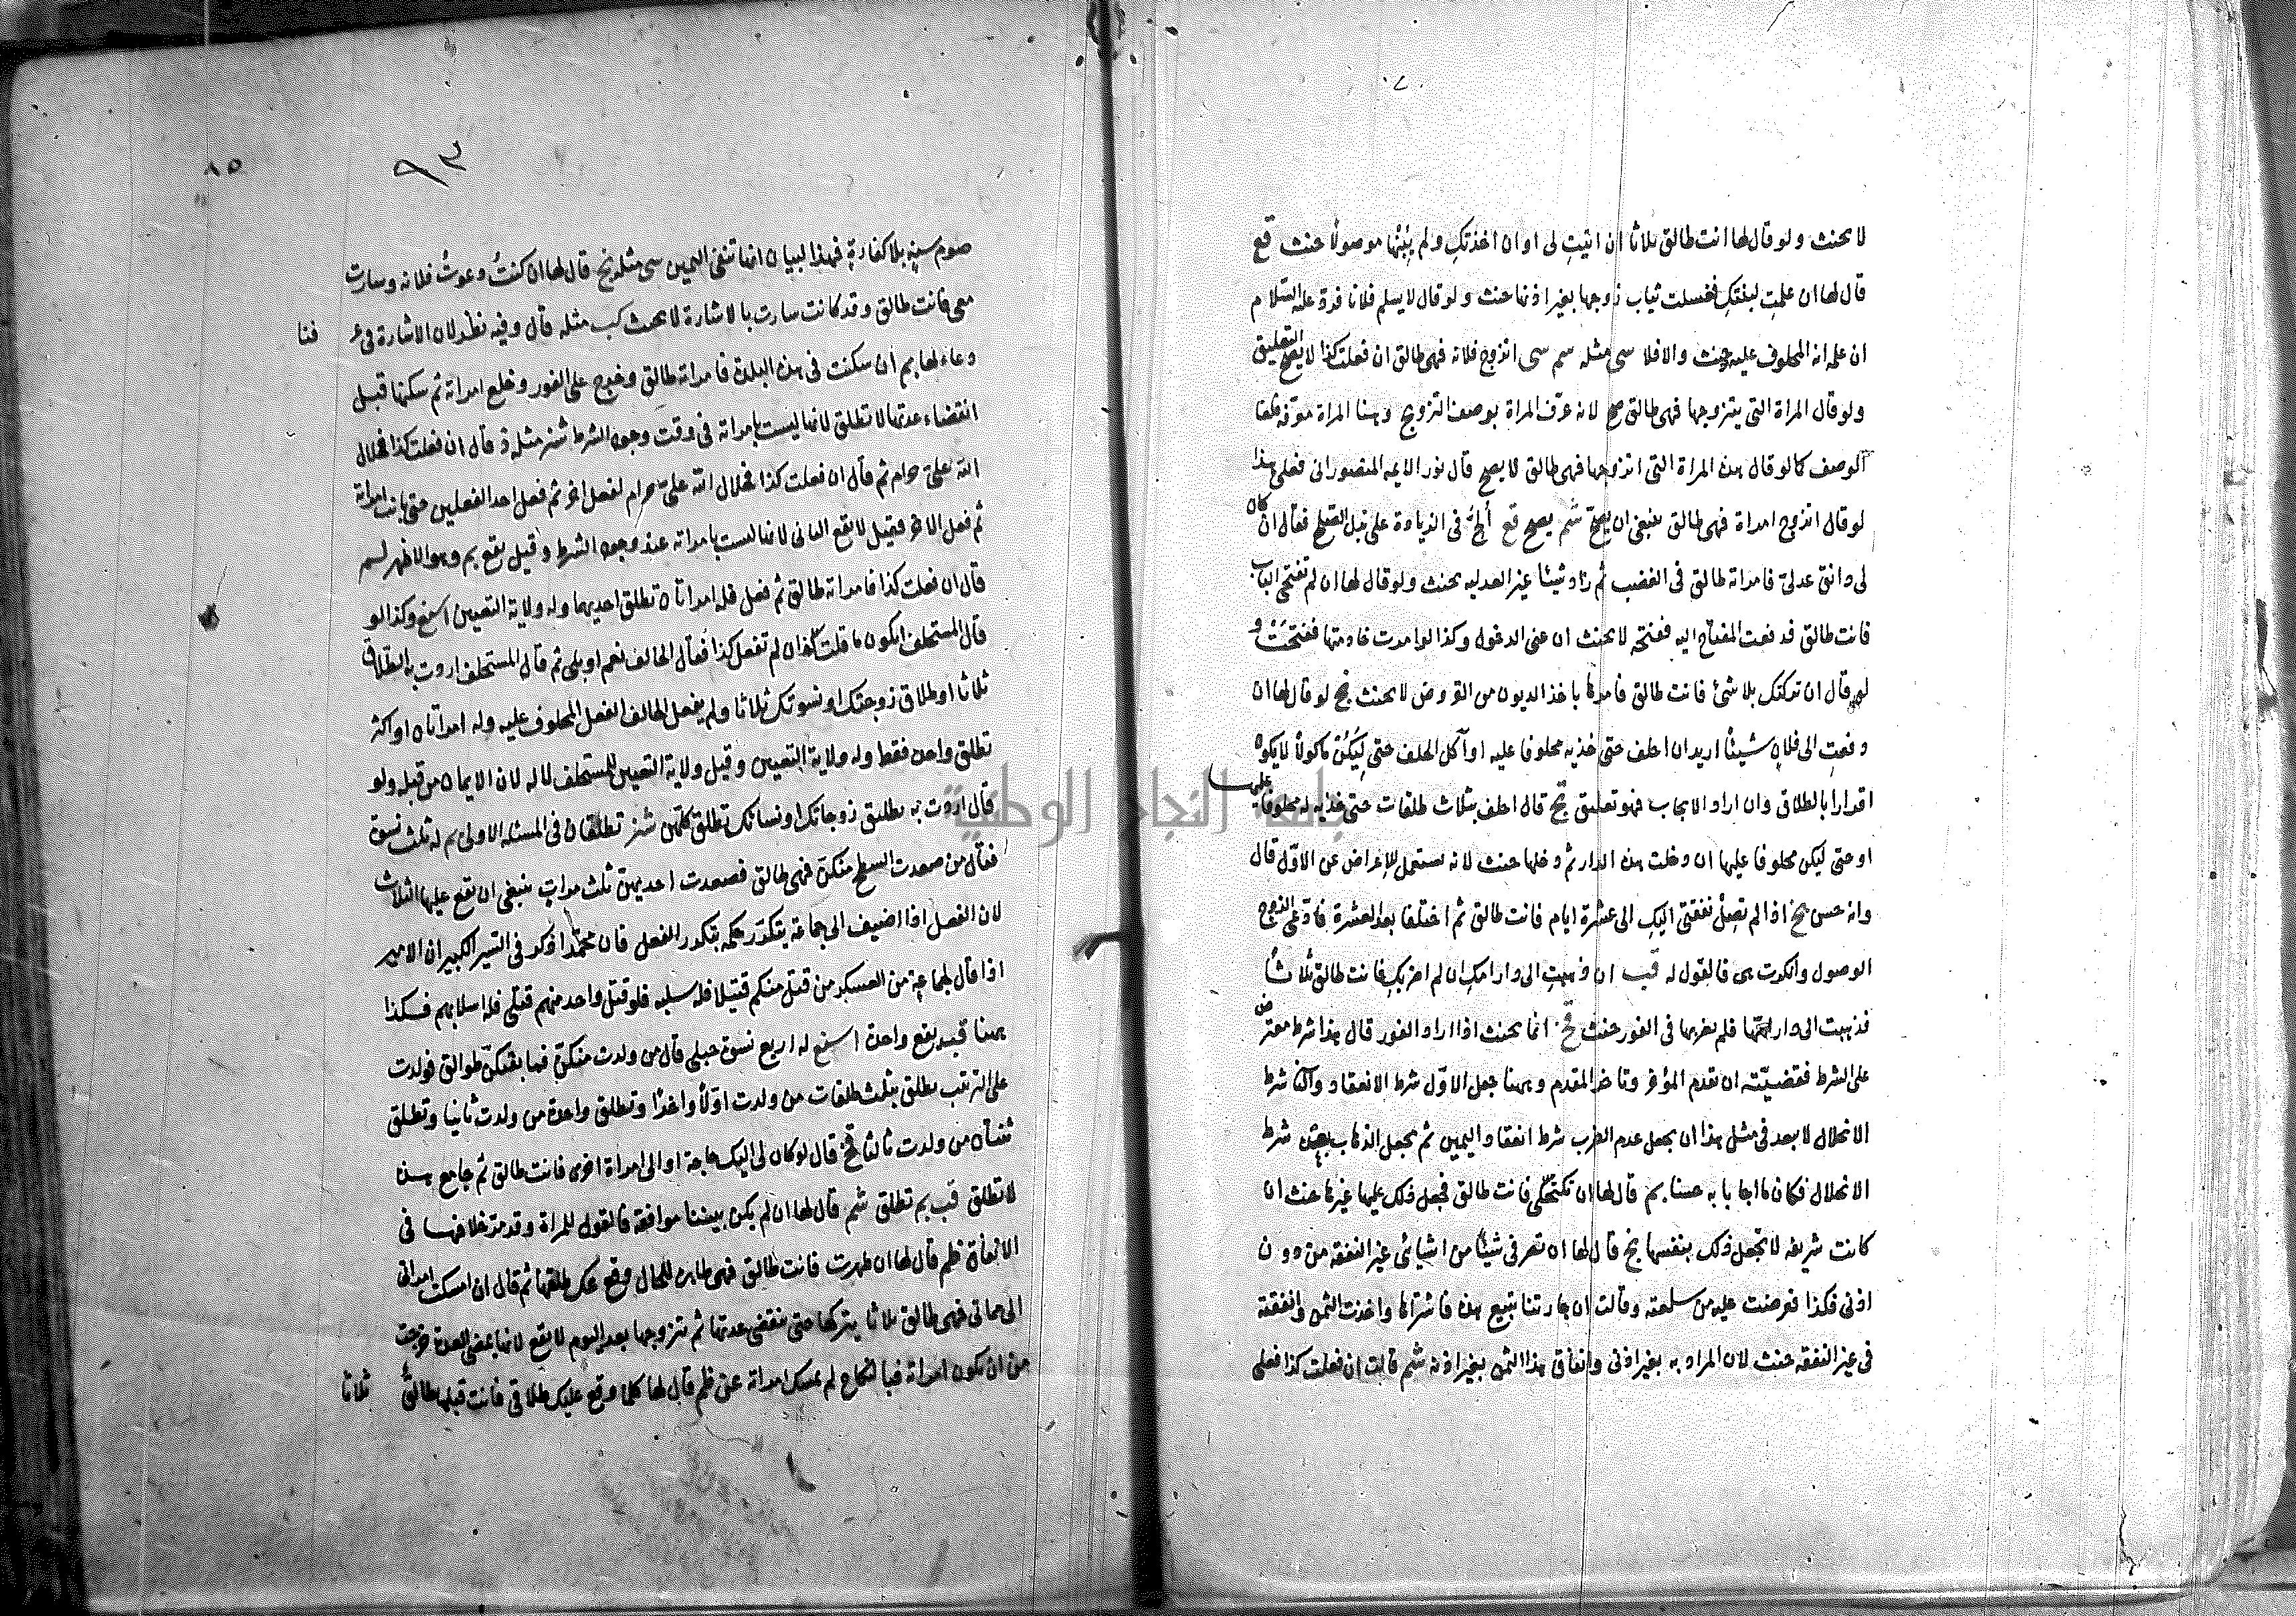 لا يحنث ولو قال لها انت طالق ثلاثا ان اتيت لى او ان اخذتك ولم موصولا حنث قع
قال لها ان غسلت ثياب زوجها بغير اذنها حنث ولو قال لا يسلم فلانا فرد عليه السلام
ان علم انه المحلوف عليه حنث والا فلا سى مثله سم سى اتزوج فلانه فهى طالق ان فعلت كذا لا يصح التعليق
ولو قال المراة التى يتزوجها فهى طالق صح لانه عرّف المراة بوصف التزوج وهنا المراة معرفة فلغا
الوصف كما لو قال هذه المراة التى اتزوجها فهى طالق لا يصح قال نور الايمه المنصورانى فعلى هذا
لو قال اتزوج امراة فهى طالق ينبغى ان يصحّ شم يصح قع فى الزيادة على فقال ان كان
لى دانق عدلىّ فامراته طالق فى الغضب ثم زاد شيئا غير العدليه يحنث ولو قال لها ان لم تفتحى الباب
فانت طالق فدفعت المفتاح اليه ففتحه لا يحنث ان عنى الدخول وكذا لو امرت خادمتها ففتحت و
لو قال ان تركتك بلا شئ فانت طالق فامرها باخذ الديون من القروض لا يحنث بخ لو قال لها ان
دفعت الى فلان شيئا اريد ان احلف حتى خذيه محلوفا عليه او آكل الحلف حتى ماكولا لا يكون
اقرارا بالطلاق وان اراد الايجاب فهو تعليق بخ قال احلف بثلاث طلقات حتى خذيه له محلوفا عليه
او حتى ليكن محلوفا عليها ان دخلت هذه الدار ثم دخلها حنث لانه يستعمل للاعراض عن الاوّل قال
وانه حسن بخ اذا لم تصل نفقتى اليك الى عشرة ايام فانت طالق ثم اختلفا بعد العشرة فادّعى الزوج
الوصول وانكرت هى فالقول له قب ان ذهبت الى دار امك ان لم اضربك فانت طالق ثلاثا
فذهبت الى دار امها فلم يضربها فى الفور حنث فخ انما يحنث اذا اراد الفور قال هذا شرط معترض
على الشرط فقضيّته ان تقدم المؤخر وتاخر المقدم وههنا جعل الاوّل شرط الانعقاد والثانى شرط
الانحلال لا يبعد فى مثل هذا ان يجعل عدم الضرب شرط انعقاد اليمين ثم يجعل الذهاب بعده شرط
الانحلال فكان ما اجابا به حسنا بم قال لها ان تكتحلى فانت طالق فجعل ذلك عليها غيرها حنث ان
كانت شريفه لا تجعل ذلك بنفسها بخ قال لها ان تصرفى شيئا من اشيائى غير النفقه من دون
اذنى فكذا فعرضت عليه من سلعته وقالت ان جارتنا تبيع هذه فاشتراها واخذت الثمن وانفقته
فى غير النفقه حنث لان المراد به بغير اذنى وانفاق هذا الثمن بغير اذنه شم قالت ان فعلت كذا فعلى
٩٣
صوم سنة بلا كفارة فهذا لبيان انها تنفى اليمين سى مثله بخ قال لها ان كنت دعوت فلانه وسارت
معى فانت طالق وقد كانت سارت بالاشارة لا يحنث كب مثله قال وفيه نظر لان الاشارة فى عر فنا
دعاء لها بم ان سكنت فى هذه البلدة فامراته طالق وخرج على الفور وخلع امراته ثم سكنها قبل
انقضاء عدتها لا تطلق لانها ليست بامراته فى وقت وجود الشرط شز مثله ذ قال ان فعلت كذا فحلال
الله علىّ حرام ثم قال ان فعلت كذا فحلال الله علىّ حرام لفعل اخر ثم فعل احد الفعلين حتى بانت امراته
ثم فعل الاخر فقيل لا يقع الثانى لانها ليست بامراته عند وجود الشرط وقيل يقع بم وهو الاظهر لسم
قال ان فعلت كذا فامراته طالق ثم فعل فله امراتان تطلق احديهما وله ولاية التعيين اسنع وكذا لو
قال المستحلف ايكون ما قلت كذا ان لم تفعل كذا فقال الحالف نعم او بلى ثم قال المستحلف اردت به الطلاق
ثلاثا او طلاق زوجتك او نسوتك ثلاثا ولم يفعل الحالف الفعل المحلوف عليه وله امراتان او اكثر
تطلق واحدة فقط وله ولاية التعيين وقيل ولاية التعيين للمستحلف لا له لان الايمان من قبله ولو
قال اردت به تطليق زوجاتك او نسائك تطلق كلهن شز تطلقان فى المسئله الاولى بم له ثلث نسوة
فقال من صعدت السطح منكن فهى طالق فصعدت احديهن ثلث مرات ينبغى ان يقع عليها الثلاث
لان الفعل اذا اضيف الى جماعة يتكرّر حكمه بتكرر الفعل فان محمّدا ذكر فى السير الكبير ان الامير
اذا قال لجماعة من العسكر من قتل منكم قتيلا فله سلبه فلو قتل واحد منهم قتلى فله اسلابهم فكذا
ههنا قب يقع واحدة اسنع له اربع نسوة حبلى قال من ولدت منكنّ فما بقيتكنّ طوالق فولدت
على الترتب يطلق بثلث طلقات من ولدت اوّلا واخرًا وتطلق واحدة من ولدت ثانيا وتطلق
ثنتان من ولدت ثالثا فخ قال لو كان لى اليك حاجة او الى امراة اخرى فانت طالق ثم جامع هذه
لا تطلق قب بم تطلق شم قال لها ان لم يكن بيننا موافقه فالقول للمراة وقد مرّ خلافها فى
الانفاق ظم قال لها ان طهرت فانت طالق فهى طاهرة للحال وقع عك طلقها ثم قال ان امسكت امراتى
الى حياتى فهى طالق ثلاثا يتركها حتى تنقضى عدتها ثم يتزوجها بعد اليوم لا يقع لانها بمضى العدة خرجت
من ان يكون امراته فبالنكاح لم يمسك امراته عن ظم قال لها كلما وقع عليك طلاقى فانت قبلها طالق ثلاثا
جامعة النجاح الوطنية